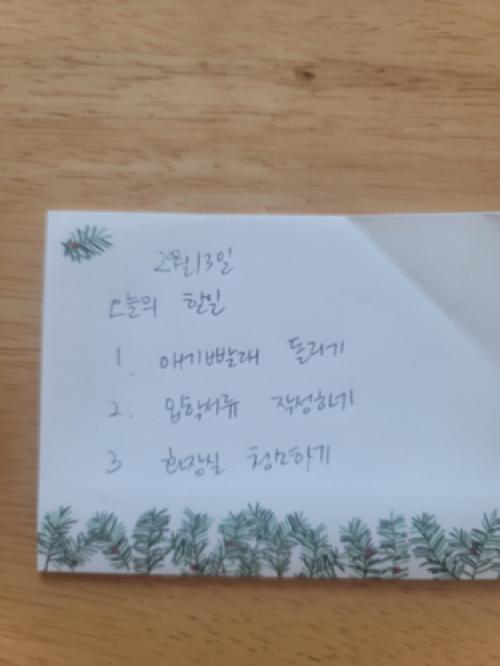 2월13일
오늘의 할일
1. 애기빨래 돌리기
2. 입학서류 작성하기
3 화장실 청소하기